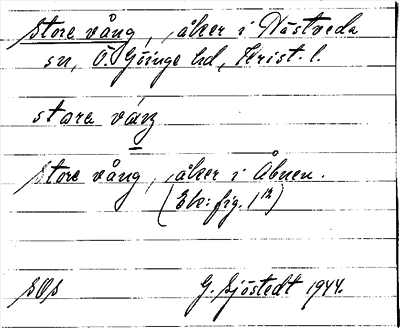 store vång, åker i Nästveda
sn, Ö. Göinge hd, Krist. l.
stora våŋ
store vång, åker i Åbnen.
(Ek: fig. 1
sOs
G. Sjöstedt 1944.